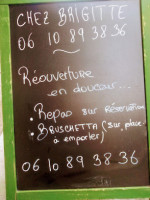 CHEZ BRIGITTE
06 10 89 38 36
Réouverture
en douceur...
• Repas sur Réservation
• BRUSCHETTA (sur place
à emporter)
06 10 89 38-36